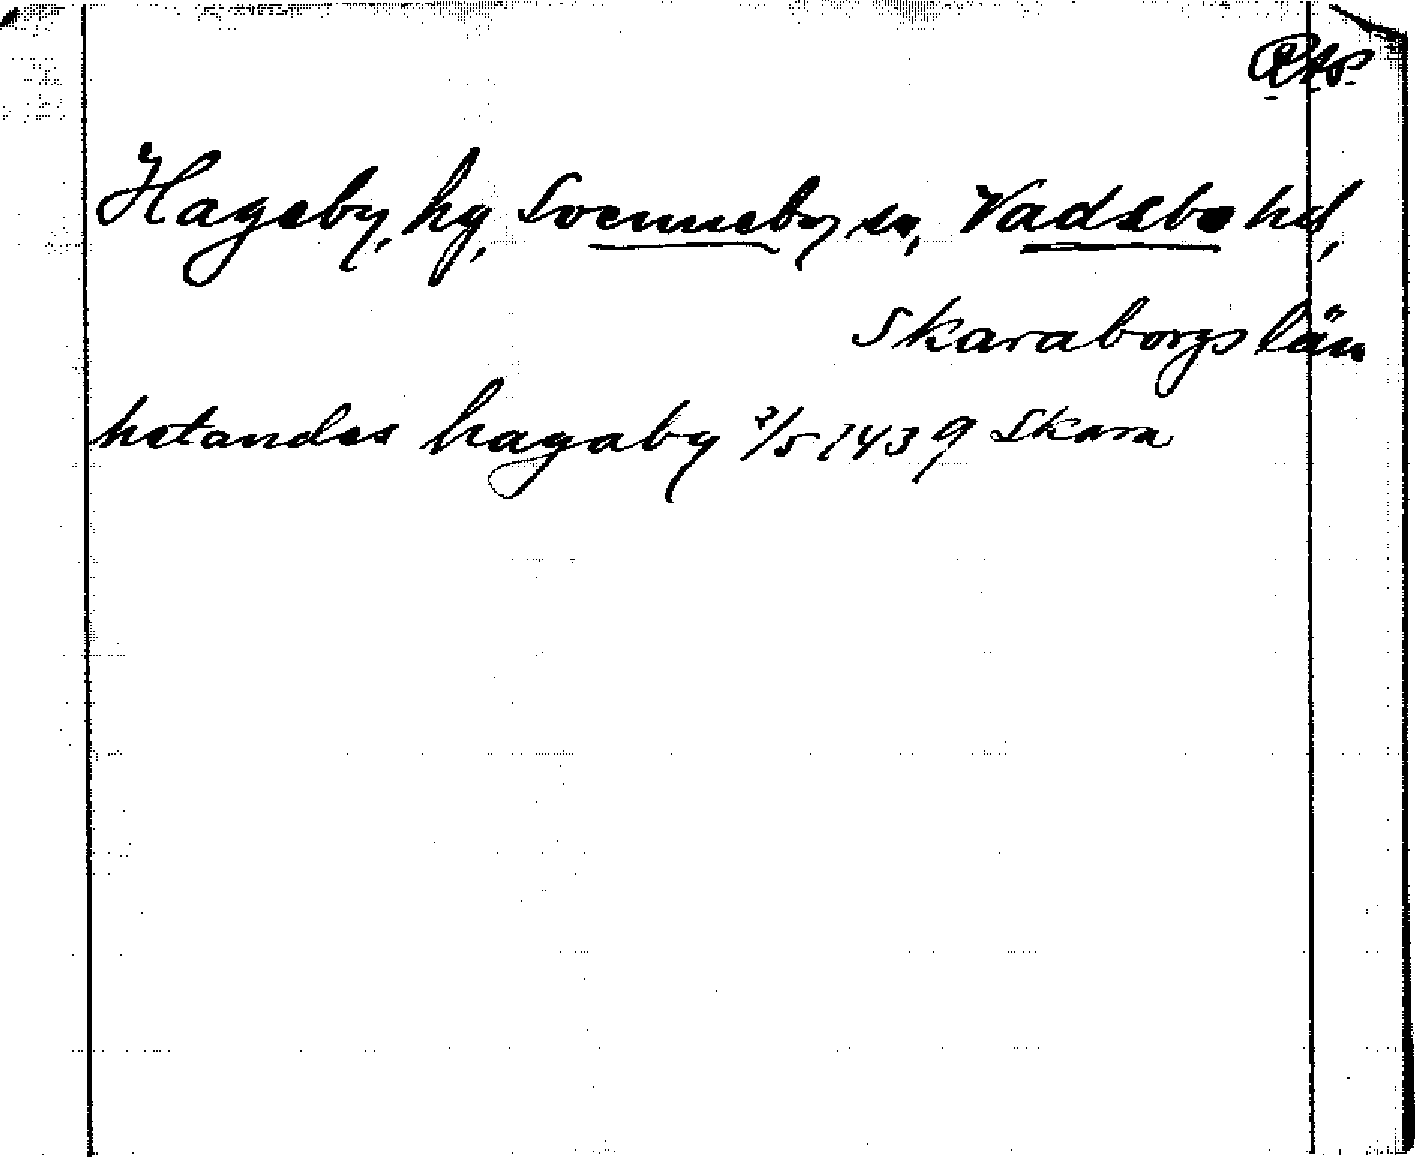 Hageby, hg, Svenneby sn, Vadsbo hd,
Skaraborgs län
hetandes hagaby 2/5 1439 Skara